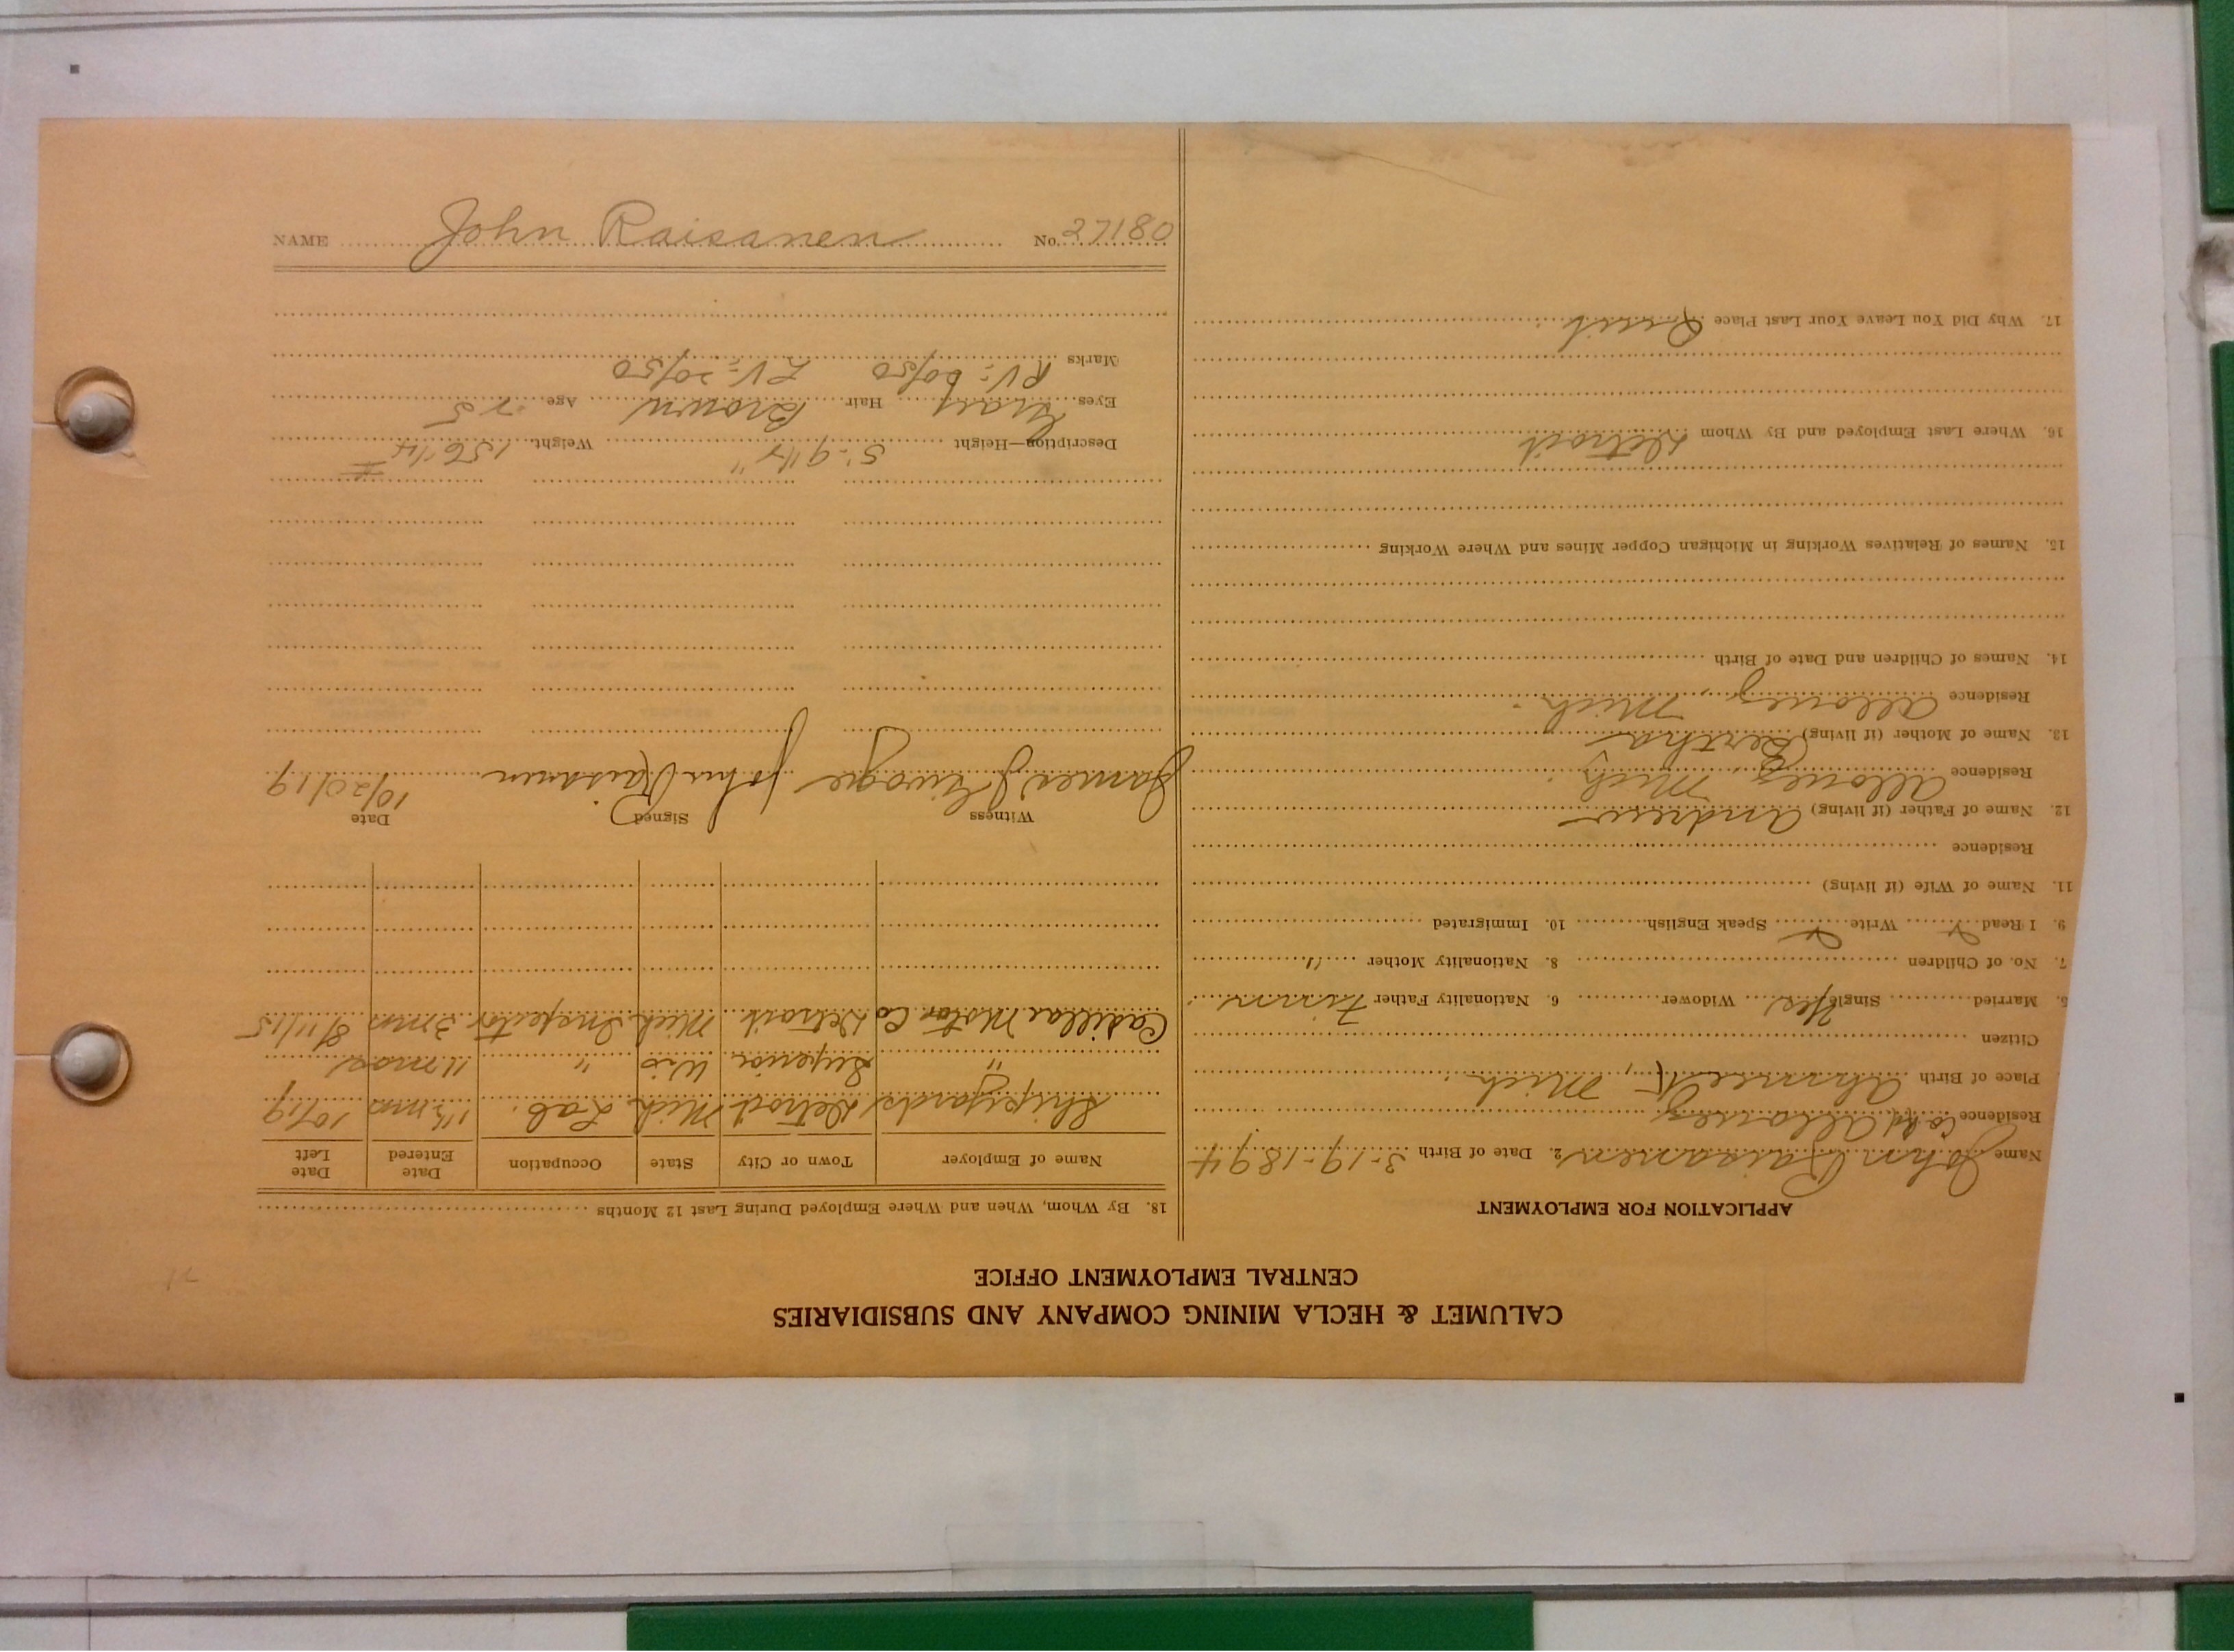 CALUMET & HECLA MINING COMPANY AND SUBSIDIARIES
CENTRAL EMPLOYMENT OFFICE
APPLICATION FOR EMPLOYMENT
Name John Raisanen 2. Date of Birth 3-19-1894
Residence Allouez
Place of Birth Ahmeek, Mich.
Citizen
5. Married Single Yes Widower 6. Nationality Father Finn
7. No. of Children 8. Nationality Mother "
9. I Read Write Speak English 10. Immigrated
11. Name of Wife (if living)
Residence
12. Name of Father (if living) Andrew
Residence Allouez, Mich.
13. Name of Mother (if living) Bertha
Residence Allouez, Mich.
14. Names of Children and Date of Birth
15. Names of Relatives Working in Michigan Copper Mines and Where Working
16. Where Last Employed and By Whom Detroit
17. Why Did You Leave Your Last Place Quit
18. By Whom, When and Where Employed During Last 12 Months
Name of Employer Town or City State Occupation Date Entered Date Left
Shipyards Detroit Mich Lab. 1½ mos 10/19
" Superior Wis " 11 mos
Cadillac Motor Co Detroit Mich. Inspector 3 mos 8/11/15
Witness Signed Date
James J. John Raisanen 10/20/19
Description—Height 5'-9½" Weight 156¼ #
Eyes Gray Hair Brown Age 25
RV: LV: 20/50
Marks
NAME John Raisanen No. 27180